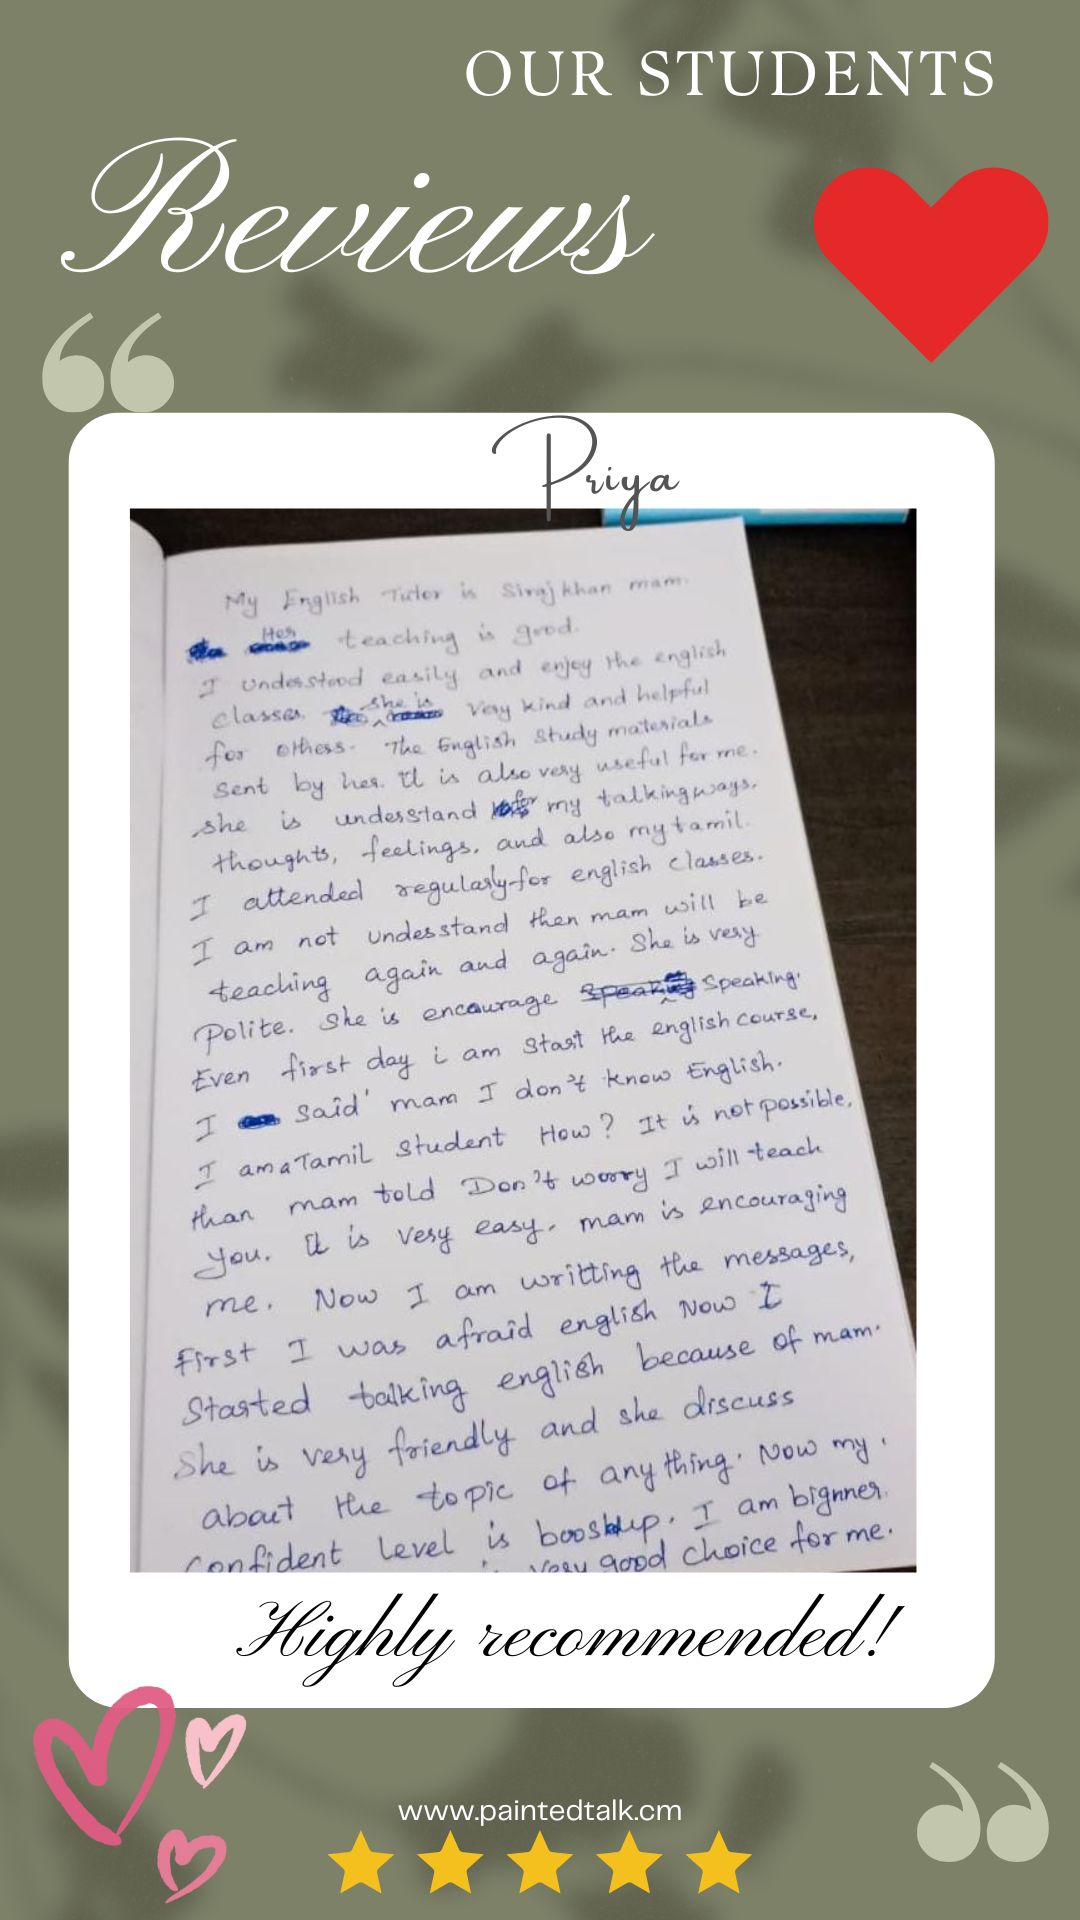 OUR STUDENTS
Reviews
Priya
My English Tutor is Sirajkhan mam.
Her teaching is good.
I understood easily and enjoy the english
classes. she is very kind and helpful
for others. The English study materials
sent by her. It is also very useful for me.
she is understand for my talkingways,
thoughts, feelings, and also my tamil.
I attended regularly for english classes.
I am not understand then mam will be
teaching again and again. She is very
Polite. She is encourage Speaking.
Even first day i am start the english course,
I said' mam I don't know English.
I am a Tamil student How? It is not possible,
than mam told Don't worry I will teach
you. It is very easy. mam is encouraging
me. Now I am writting the messages,
First I was afraid english Now I
Started talking english because of mam.
She is very friendly and she discuss
about the topic of anything. Now my
Confident level is boostup. I am bignner.
very good choice for me.
Highly recommended!
www.paintedtalk.cm